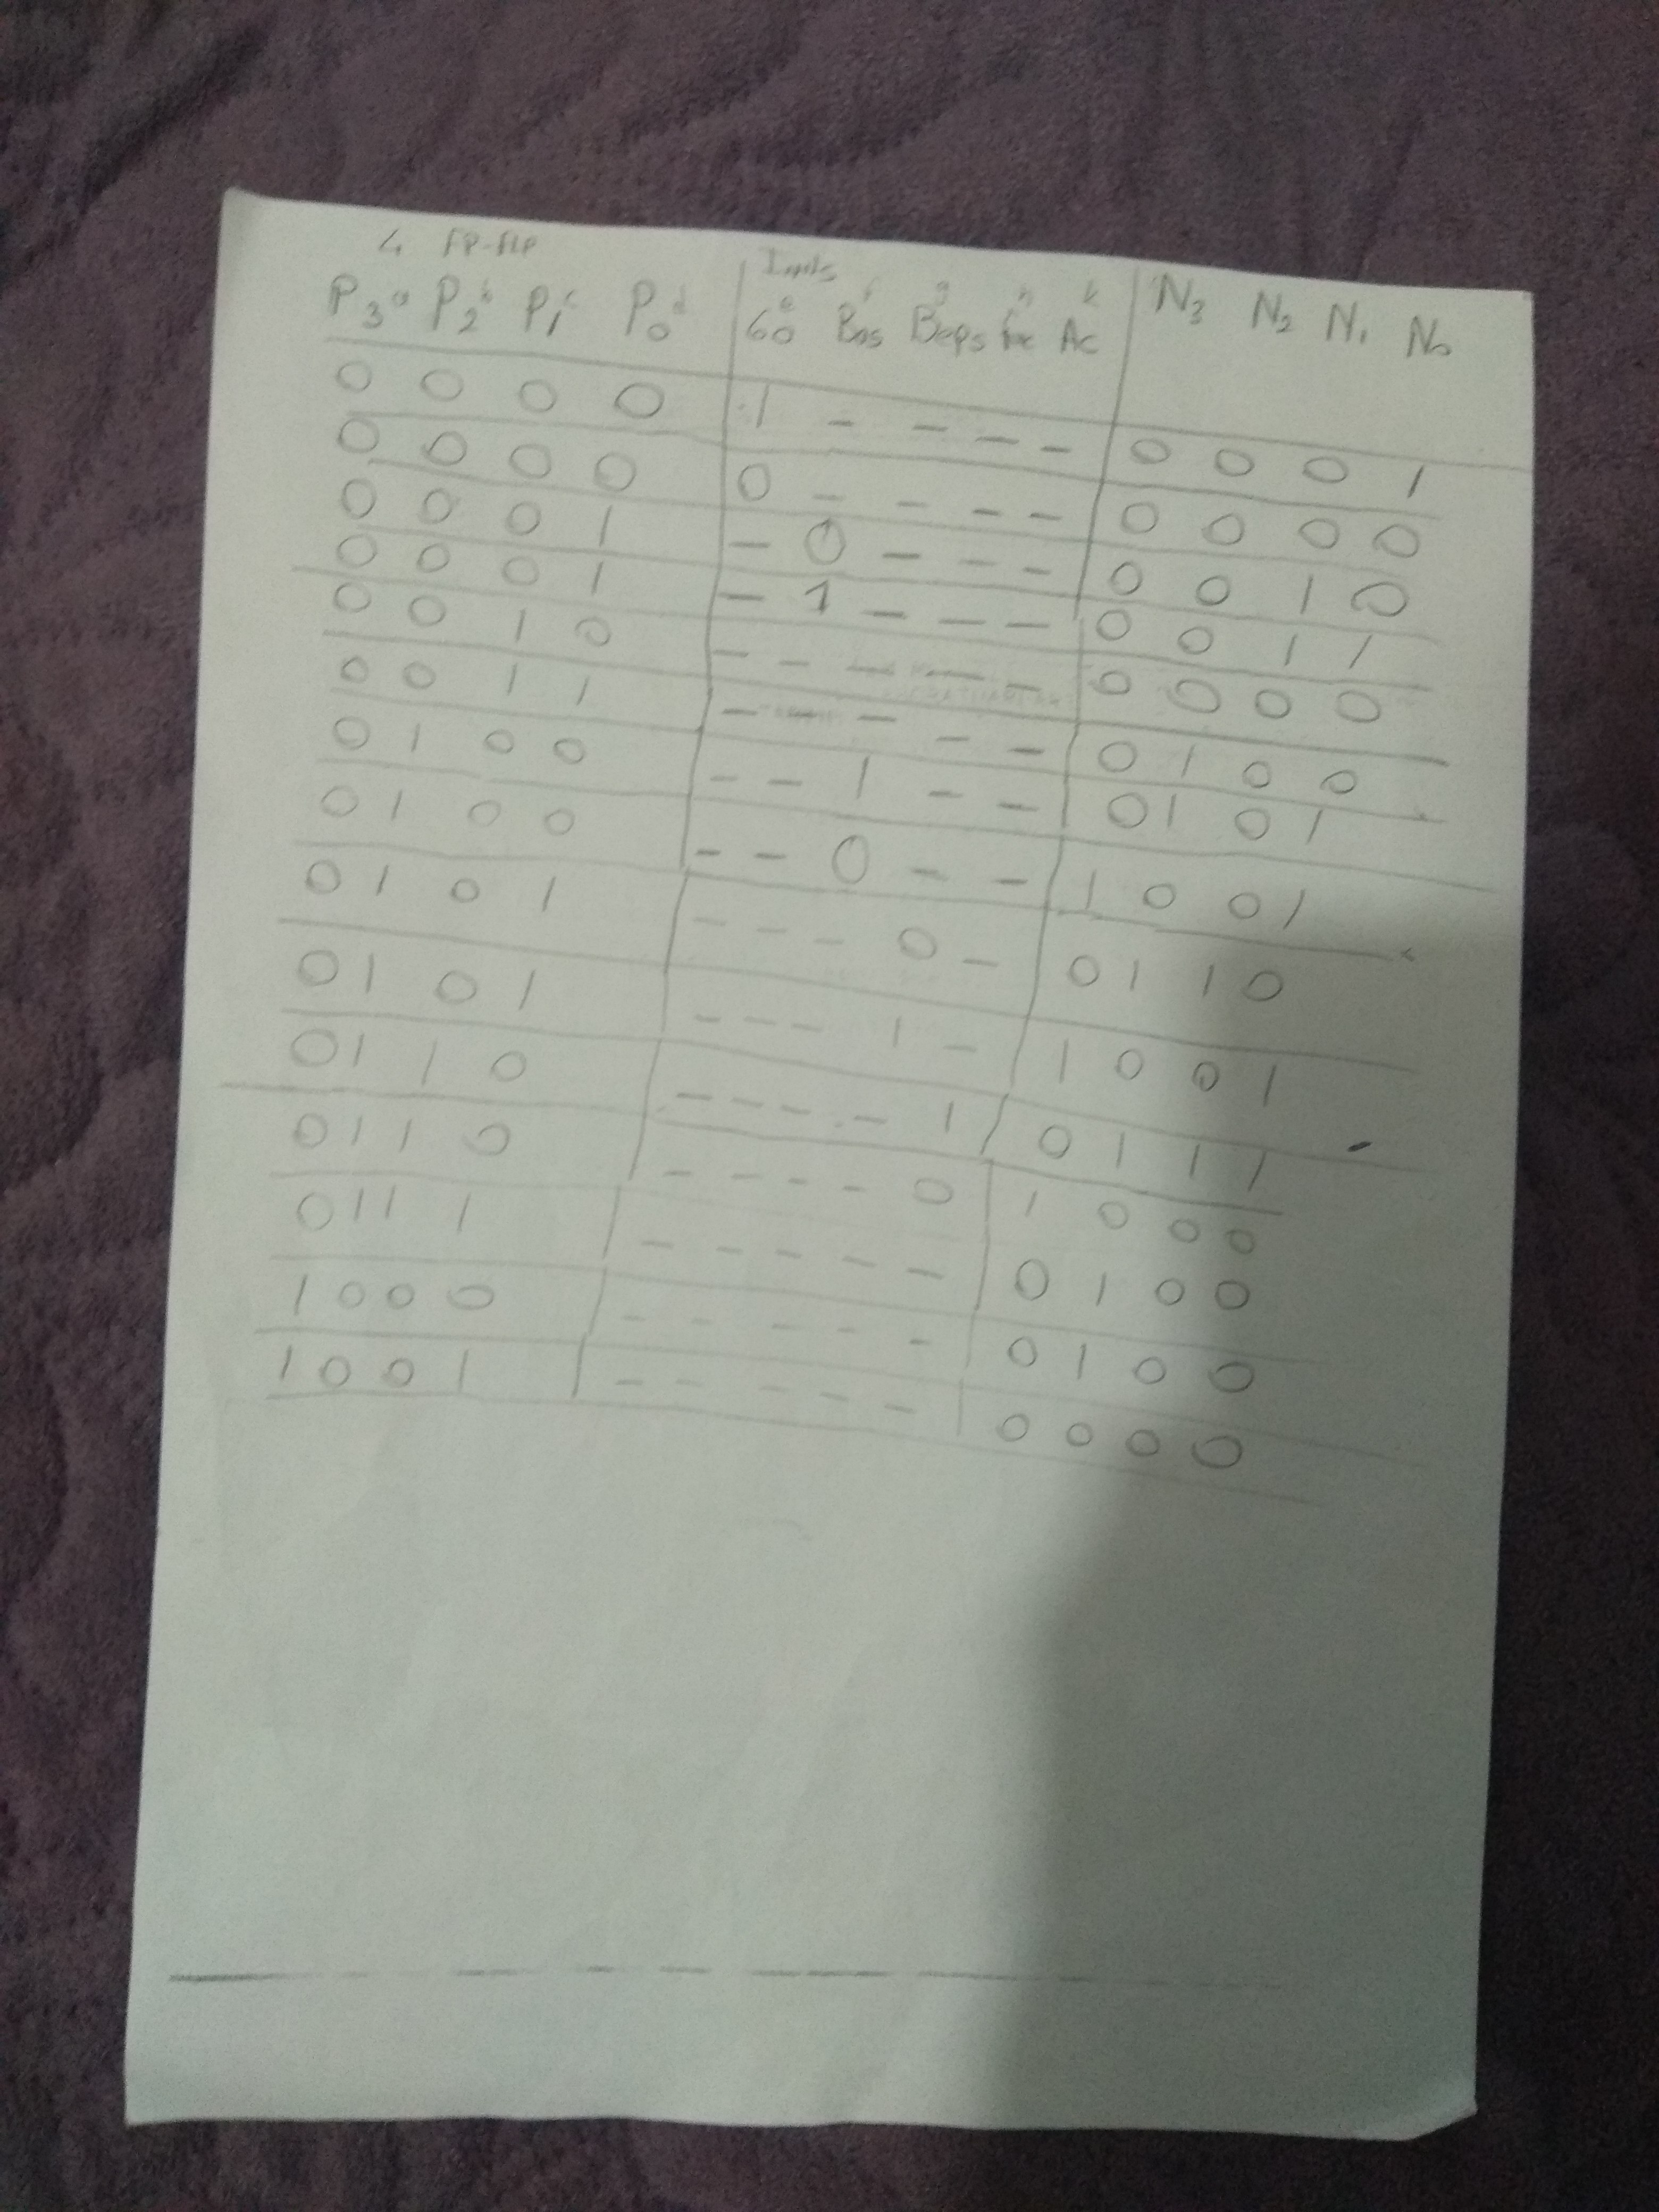 4 FP-FLP
P3 a P2 b P1 c P0 d | 60 e Bas f Beps g h Ac k | N3 N2 N1 N0
0 0 0 0 | 1 - - - - | 0 0 0 1
0 0 0 0 | 0 - - - - | 0 0 0 0
0 0 0 1 | - 0 - - - | 0 0 1 0
0 0 0 1 | - 1 - - - | 0 0 1 1
0 0 1 0 | - - - - - | 0 0 0 0
0 0 1 1 | - - - - - | 0 1 0 0
0 1 0 0 | - - 1 - - | 0 1 0 1
0 1 0 0 | - - 0 - - | 1 0 0 1
0 1 0 1 | - - - 0 - | 0 1 1 0
0 1 0 1 | - - - 1 - | 1 0 0 1
0 1 1 0 | - - - - 1 | 0 1 1 1
0 1 1 0 | - - - - 0 | 1 0 0 0
0 1 1 1 | - - - - - | 0 1 0 0
1 0 0 0 | - - - - - | 0 1 0 0
1 0 0 1 | - - - - - | 0 0 0 0